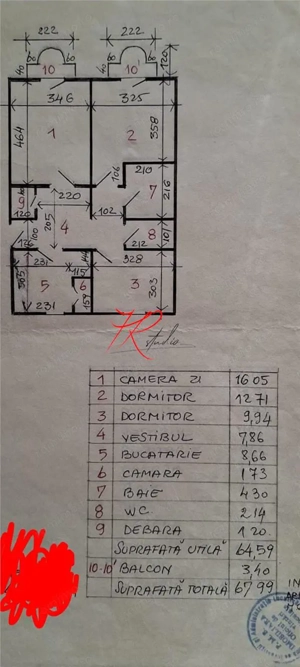 222 222
60 60 60 60
10 10'
40 40 120
346 325
464 1 2 358
106 210
216
9 220 7
120 205 4 102
100 8 101
126 212
231 44 328
115
305 5 6 3 303
231 157
7R
studio
1 CAMERA ZI 16 05
2 DORMITOR 12 71
3 DORMITOR 9,94
4 VESTIBUL 7,86
5 BUCATARIE 8,66
6 CAMARA 1 73
7 BAIE 4 30
8 WC. 2 14
9 DEBARA 1 20
SUPRAFATĂ UTILĂ 64,59
10·10' BALCON 3,40
SUPRAFATĂ TOTALĂ 67 99